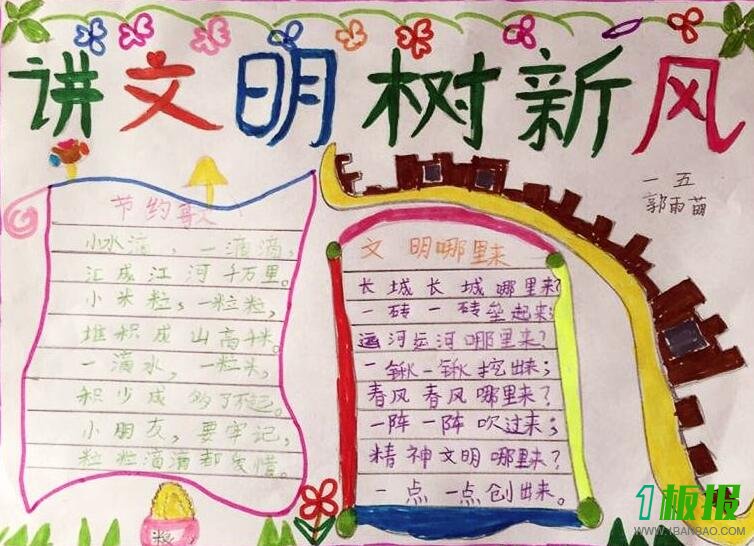 讲文明树新风
一五
郭雨苗
节约歌
小水滴，一滴滴，
汇成江河千万里。
小米粒，一粒粒，
堆积成山高无
一滴水，一粒米，
积少成多了不起。
小朋友，要牢记，
粒粒滴滴都爱惜。
文明哪里来
长城长城哪里来？
一砖一砖垒起来；
运河运河哪里来？
一锹一锹挖出来；
春风春风哪里来？
一阵一阵吹过来；
精神文明哪里来？
一点一点创出来。
粮
1板报
WWW.1BANBAO.COM